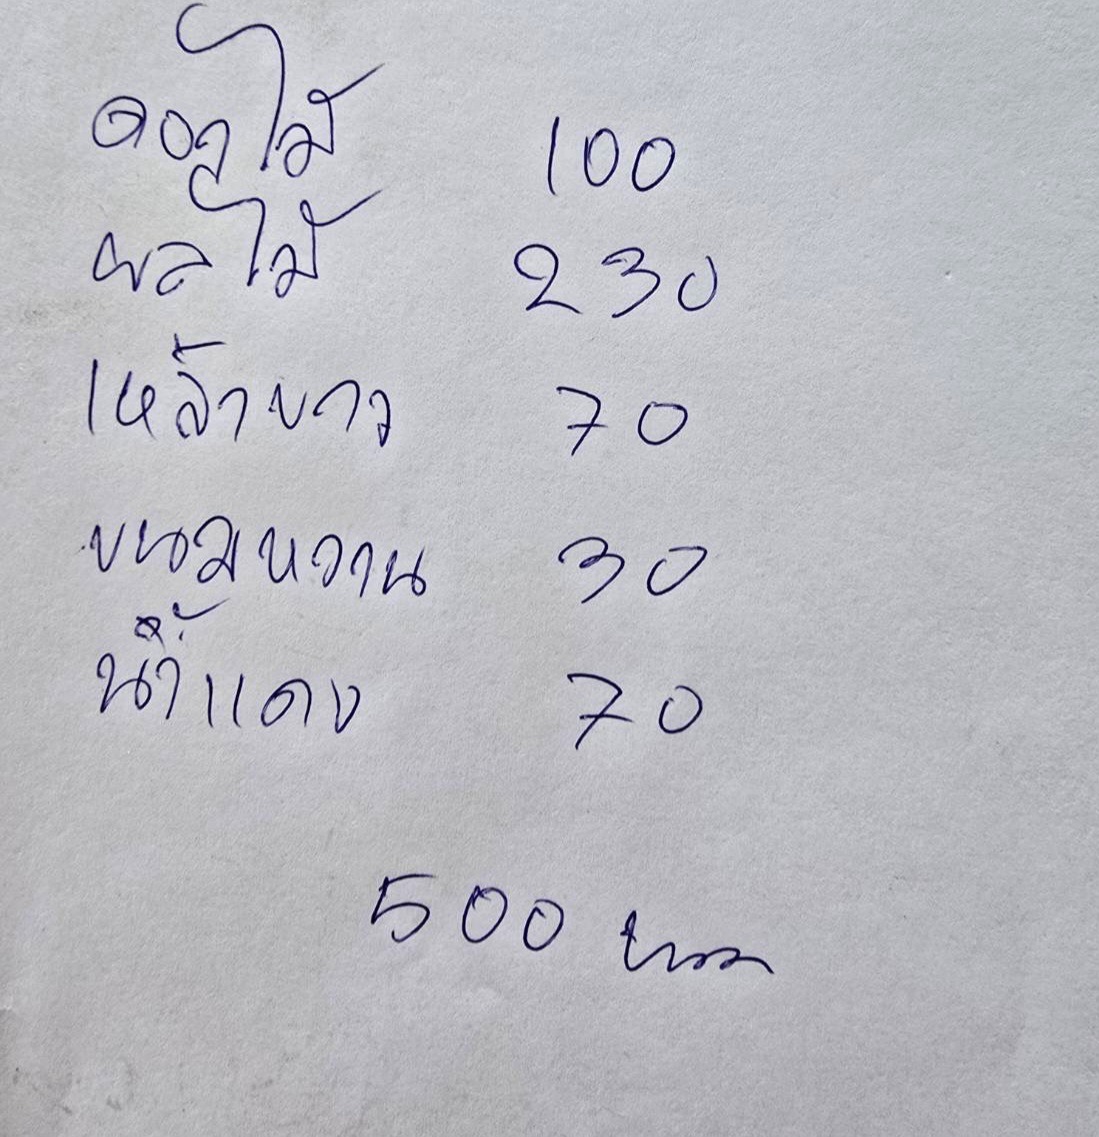 ดอกไม้ 100
ผลไม้ 230
เหล้าขาว 70
ขนมหวาน 30
น้ำแดง 70
500 บาท